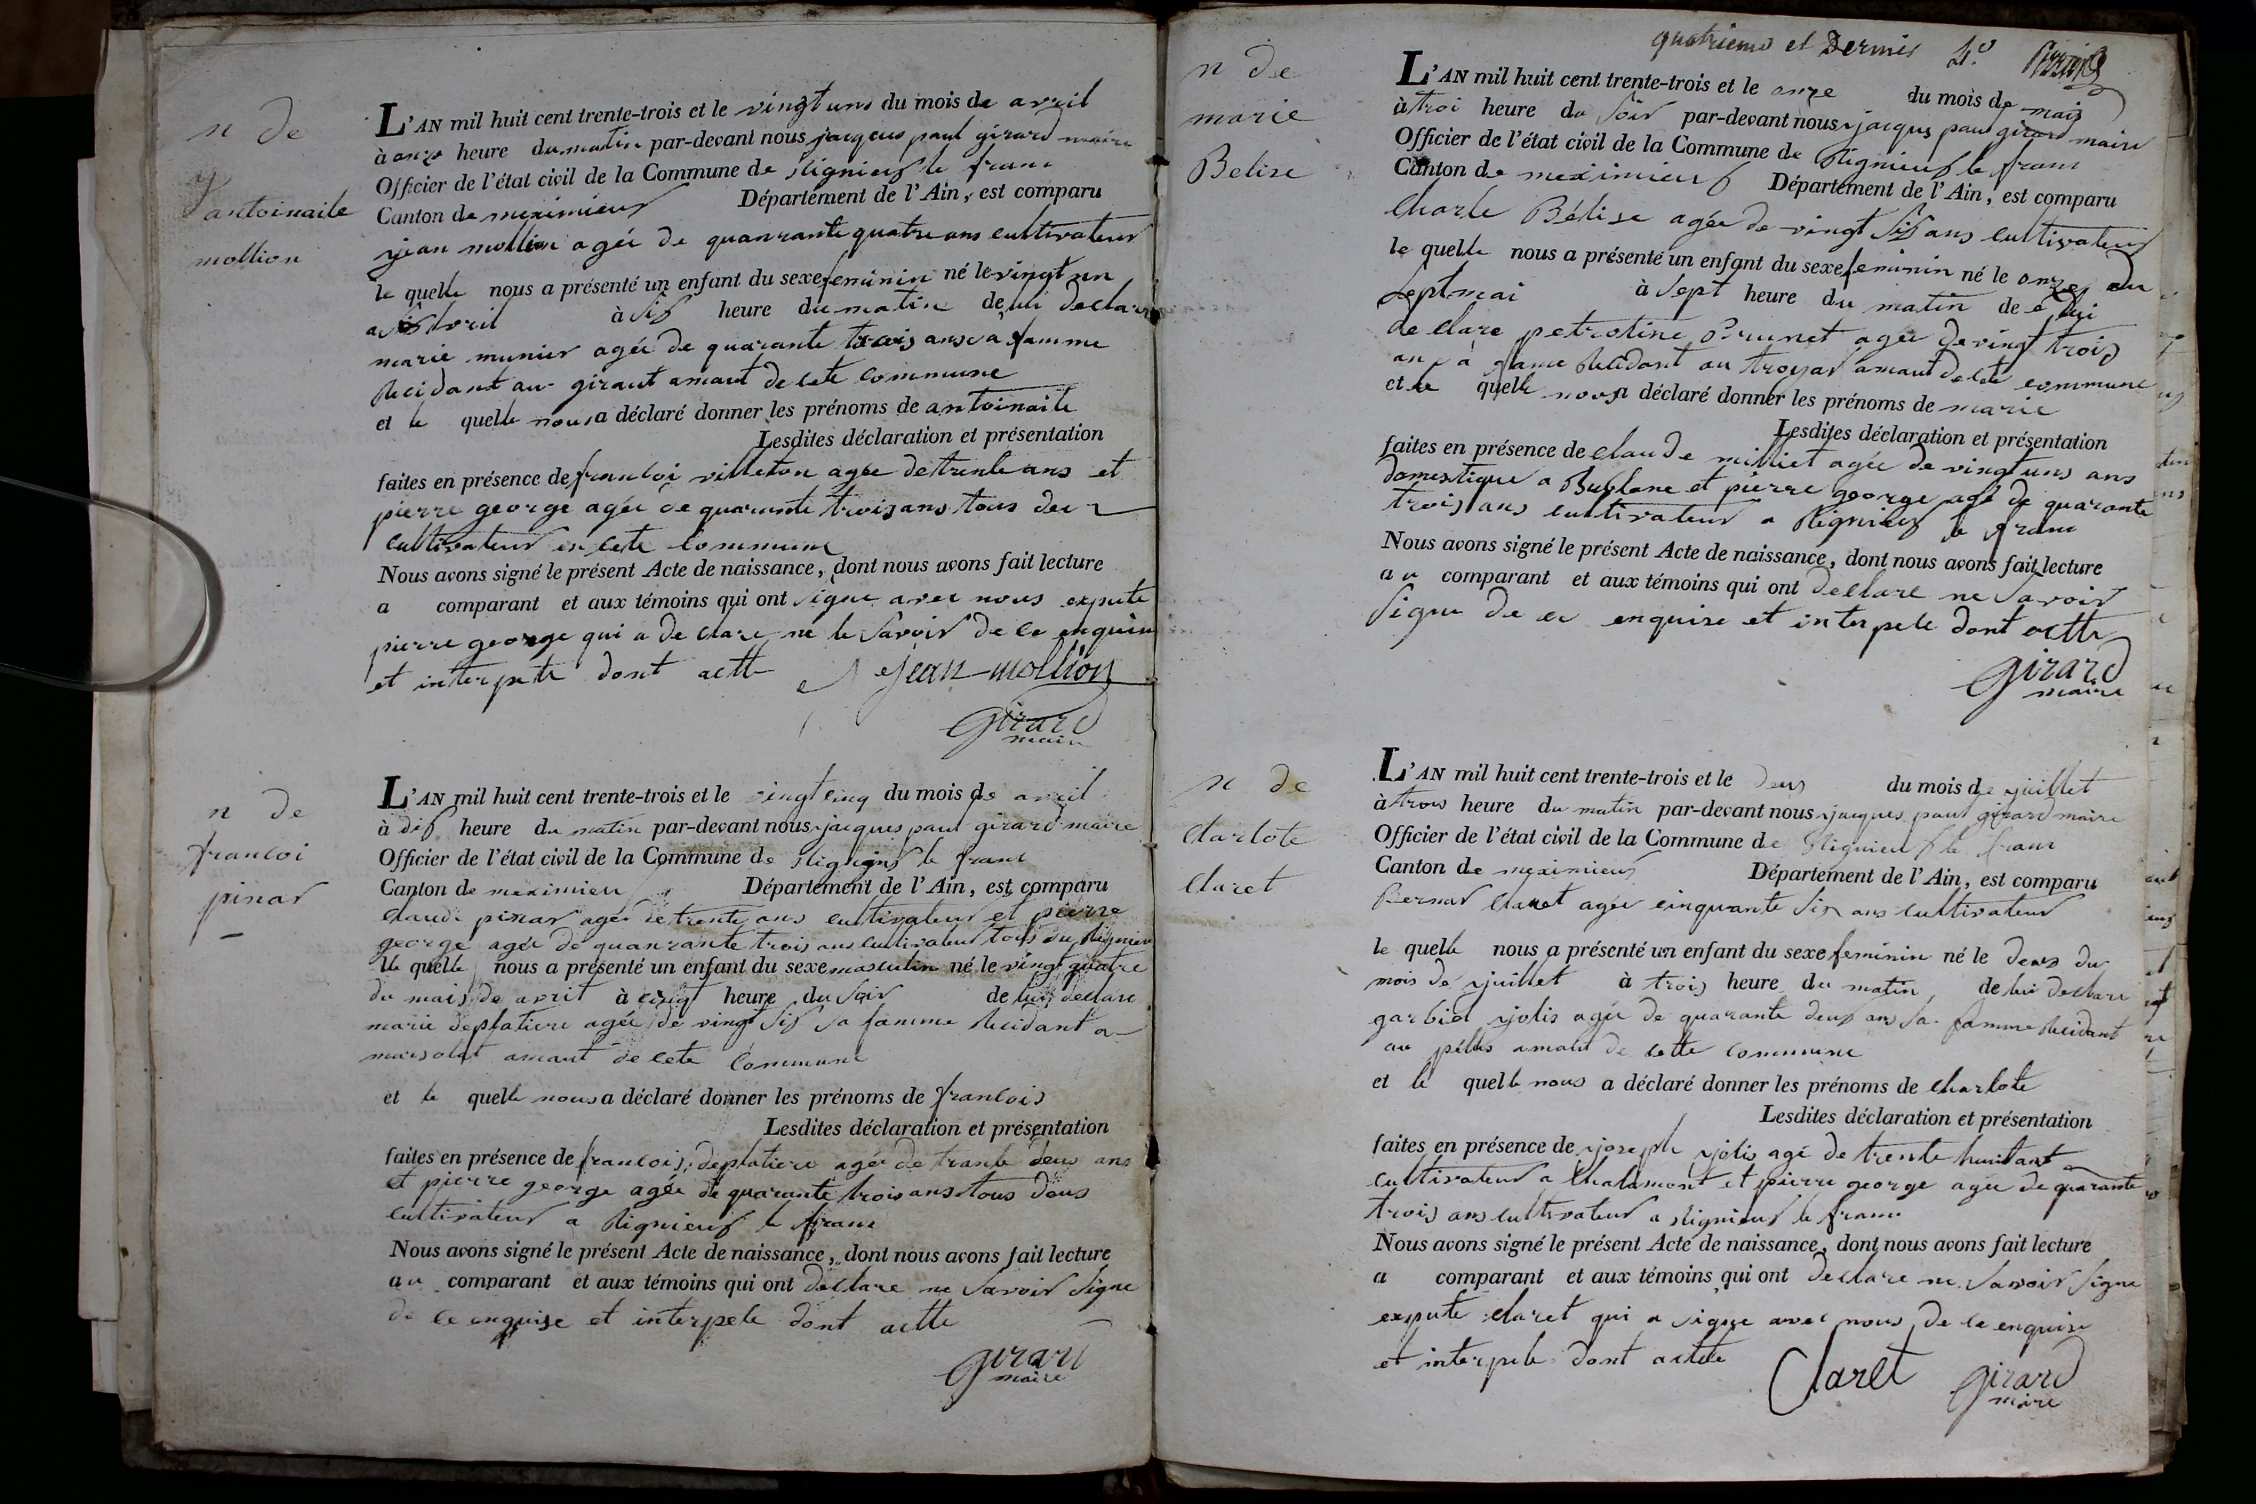 n de
antoinaite
mollion
L'AN mil huit cent trente-trois et le vingt uns du mois de avril
à onze heure du matin par-devant nous jacques paul girard maire
Officier de l'état civil de la Commune de Rignieux le franc
Canton de meximieux Département de l'Ain, est comparu
jean mollion agée de quanrante quatre ans cultivateur
le quelle nous a présenté un enfant du sexe feminin né le vingt un
avril à six heure du matin de lui declare
marie munier agée de quarante trois ans sa famme
Recidant au giraut amaut de cete commune
et le quelle nous a déclaré donner les prénoms de antoinaite
Lesdites déclaration et présentation
faites en présence de francoi villeton agée de trente ans et
pierre george agée de quarante trois ans tous deu
cultivateur en cete commune
Nous avons signé le présent Acte de naissance, dont nous avons fait lecture
a comparant et aux témoins qui ont signe avec nous expute
pierre george qui a declare ne le savoir de ce enquise
et interpete dont actte jean mollion
girard
maire
n de
francoi
pinar
L'AN mil huit cent trente-trois et le vingt cinq du mois de avril
à dix heure du matin par-devant nous jacques paul girard maire
Officier de l'état civil de la Commune de Rignieux le franc
Canton de meximieu Département de l'Ain, est comparu
claude pinar agée de trente ans cultivateur et pierre
george agée de quanrante trois ans cultivateur tous du Rignieu
le quelle nous a présenté un enfant du sexe masculin né le vingt quatre
du mais de avril à cinq heure du soir de lui declare
marie deplatiere agée de vingt six sa famme Recidant a
amaut de cete commune
et le quelle nous a déclaré donner les prénoms de francois
Lesdites déclaration et présentation
faites en présence de francois deplatiere agée de trante deux ans
et pierre george agée de quarante trois ans tous deus
cultivateur a Rignieux le franc
Nous avons signé le présent Acte de naissance, dont nous avons fait lecture
au comparant et aux témoins qui ont declare ne savoir signe
de ce enquise et interpele dont actte
girard
maire
quatrieme et dernier 4e
n de
marie
Belise
L'AN mil huit cent trente-trois et le onze du mois de mais
à troi heure du soir par-devant nous jacques paul girard maire
Officier de l'état civil de la Commune de Rignieux le franc
Canton de meximieux Département de l'Ain, est comparu
Charle Bélise agée de vingt six ans cultivateur
le quelle nous a présenté un enfant du sexe feminin né le onze du
mai à sept heure du matin de lui
declare petroline Prunet agée de vingt trois
ans sa famme Recidant au troyar amaut de cete commune
et le quelle nous a déclaré donner les prénoms de marie
Lesdites déclaration et présentation
faites en présence de claude milliet agée de vingt uns ans
domestique a Bublane et pierre george agé de quarante
trois ans cultivateur a Rignieux le franc
Nous avons signé le présent Acte de naissance, dont nous avons fait lecture
au comparant et aux témoins qui ont declare ne savoir
signe de ce enquise et interpele dont actte
girard
maire
n de
Charlote
Claret
L'AN mil huit cent trente-trois et le deus du mois de juillet
à trois heure du matin par-devant nous jacques paul girard maire
Officier de l'état civil de la Commune de Rignieux le franc
Canton de meximieux Département de l'Ain, est comparu
Bernar Claret agée cinquante six ans cultivateur
le quelle nous a présenté un enfant du sexe feminin né le deux du
mois de juillet à trois heure du matin de lui declare
garbiel jolis agée de quarante deux ans sa famme Recidant
au amaut de cette commune
et le quelle nous a déclaré donner les prénoms de Charlote
Lesdites déclaration et présentation
faites en présence de joseph jolis agé de trente huit ant
cultivateur a Chalamont et pierre george agée de quarante
trois ans cultivateur a Rignieux le franc
Nous avons signé le présent Acte de naissance, dont nous avons fait lecture
a comparant et aux témoins qui ont declare ne savoir signe
expute claret qui a signe avec nous de ce enquise
et interpele dont actte Claret girard
maire